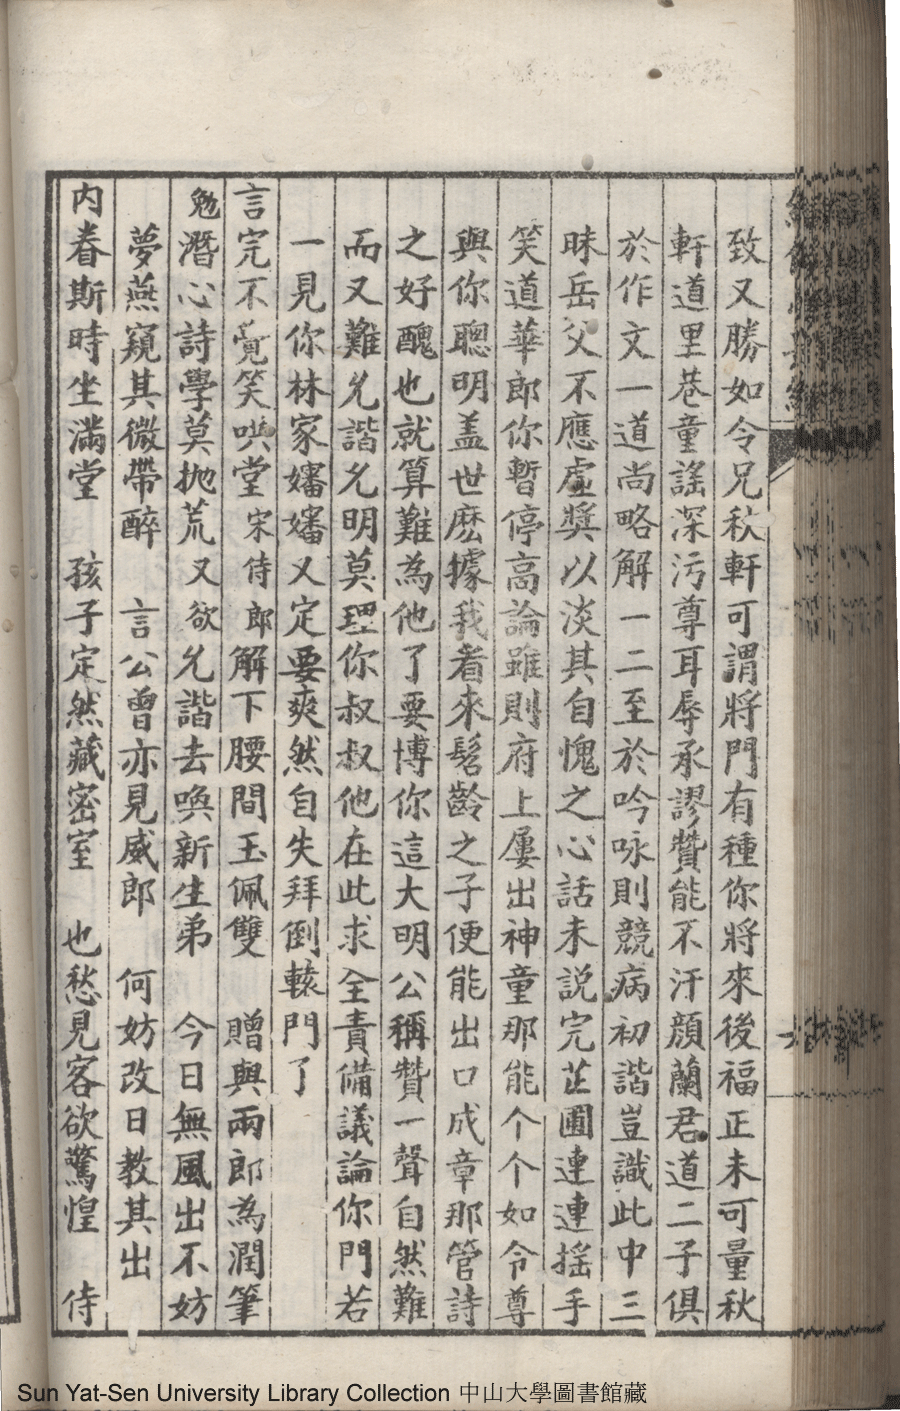 致又勝如令兄秋軒可謂將門有種你將來後福正未可量秋
軒道里巷童謠深污尊耳辱承謬贊能不汗顏蘭君道二子俱
於作文一道尚略解一二至於吟咏則競病初諧豈識此中三
昧岳父不應虛獎以淡其自愧之心話未說完芷圃連連搖手
笑道華郎你暫停高論雖則府上屢出神童那能个个如令尊
與你聰明盖世麽據我看來髫齡之子便能出口成章那管詩
之好醜也就算難為他了要博你這大明公稱贊一聲自然難
而又難允諧允明莫理你叔叔他在此求全責備議論你門若
一見你林家嬸嬸又定要爽然自失拜倒轅門了
言完不覺笑哄堂 宋侍郎解下腰間玉佩雙 贈與兩郎為潤筆
勉潛心詩學莫抛荒 又欲允諧去喚新生弟 今日無風出不妨
夢燕窺其微帶醉 言公曾亦見威郎 何妨改日教其出
内眷斯時坐滿堂 孩子定然藏密室 也愁見客欲驚惶 侍
Sun Yat-Sen University Library Collection 中山大學圖書館藏